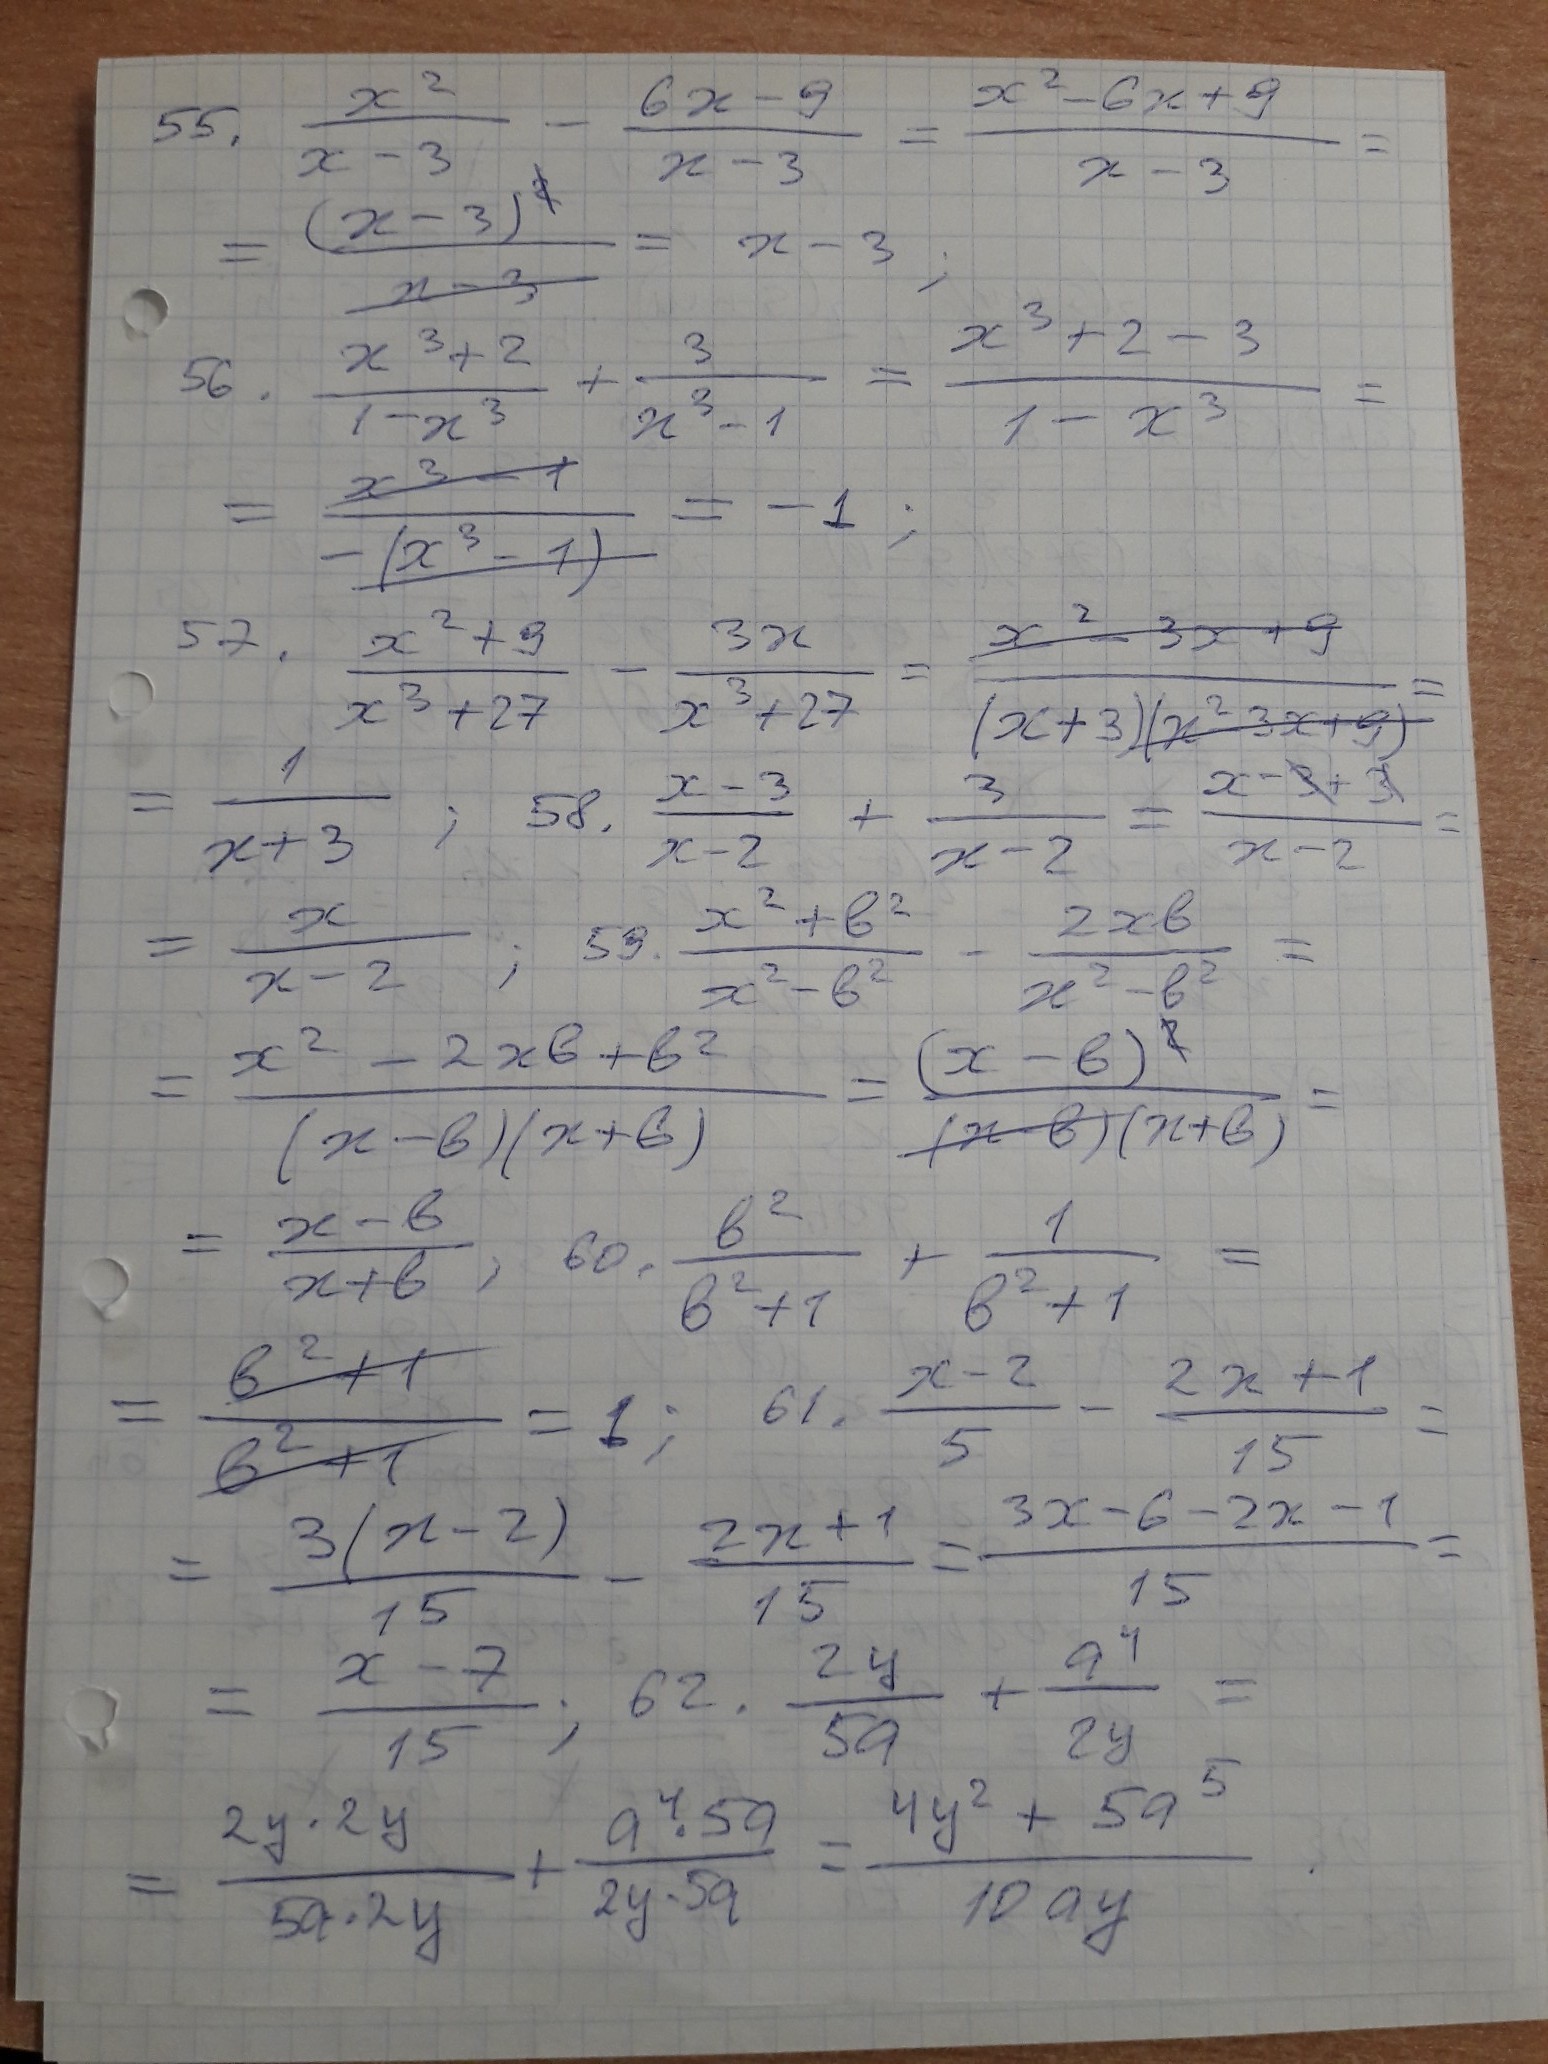 55. \frac{x^2}{x-3} - \frac{6x-9}{x-3} = \frac{x^2-6x+9}{x-3} =
= \frac{(x-3)^2}{x-3} = x-3 ;
56. \frac{x^3+2}{1-x^3} + \frac{3}{x^3-1} = \frac{x^3+2-3}{1-x^3} =
= \frac{x^3-1}{-(x^3-1)} = -1 ;
57. \frac{x^2+9}{x^3+27} - \frac{3x}{x^3+27} = \frac{x^2-3x+9}{(x+3)(x^2-3x+9)} =
= \frac{1}{x+3} ; 58. \frac{x-3}{x-2} + \frac{3}{x-2} = \frac{x-3+3}{x-2} =
= \frac{x}{x-2} ; 59. \frac{x^2+b^2}{x^2-b^2} - \frac{2xb}{x^2-b^2} =
= \frac{x^2-2xb+b^2}{(x-b)(x+b)} = \frac{(x-b)^2}{(x-b)(x+b)} =
= \frac{x-b}{x+b} ; 60. \frac{b^2}{b^2+1} + \frac{1}{b^2+1} =
= \frac{b^2+1}{b^2+1} = 1 ; 61. \frac{x-2}{5} - \frac{2x+1}{15} =
= \frac{3(x-2)}{15} - \frac{2x+1}{15} = \frac{3x-6-2x-1}{15} =
= \frac{x-7}{15} ; 62. \frac{2y}{5a} + \frac{a^4}{2y} =
= \frac{2y·2y}{5a·2y} + \frac{a^4·5a}{2y·5a} = \frac{4y^2+5a^5}{10ay} .